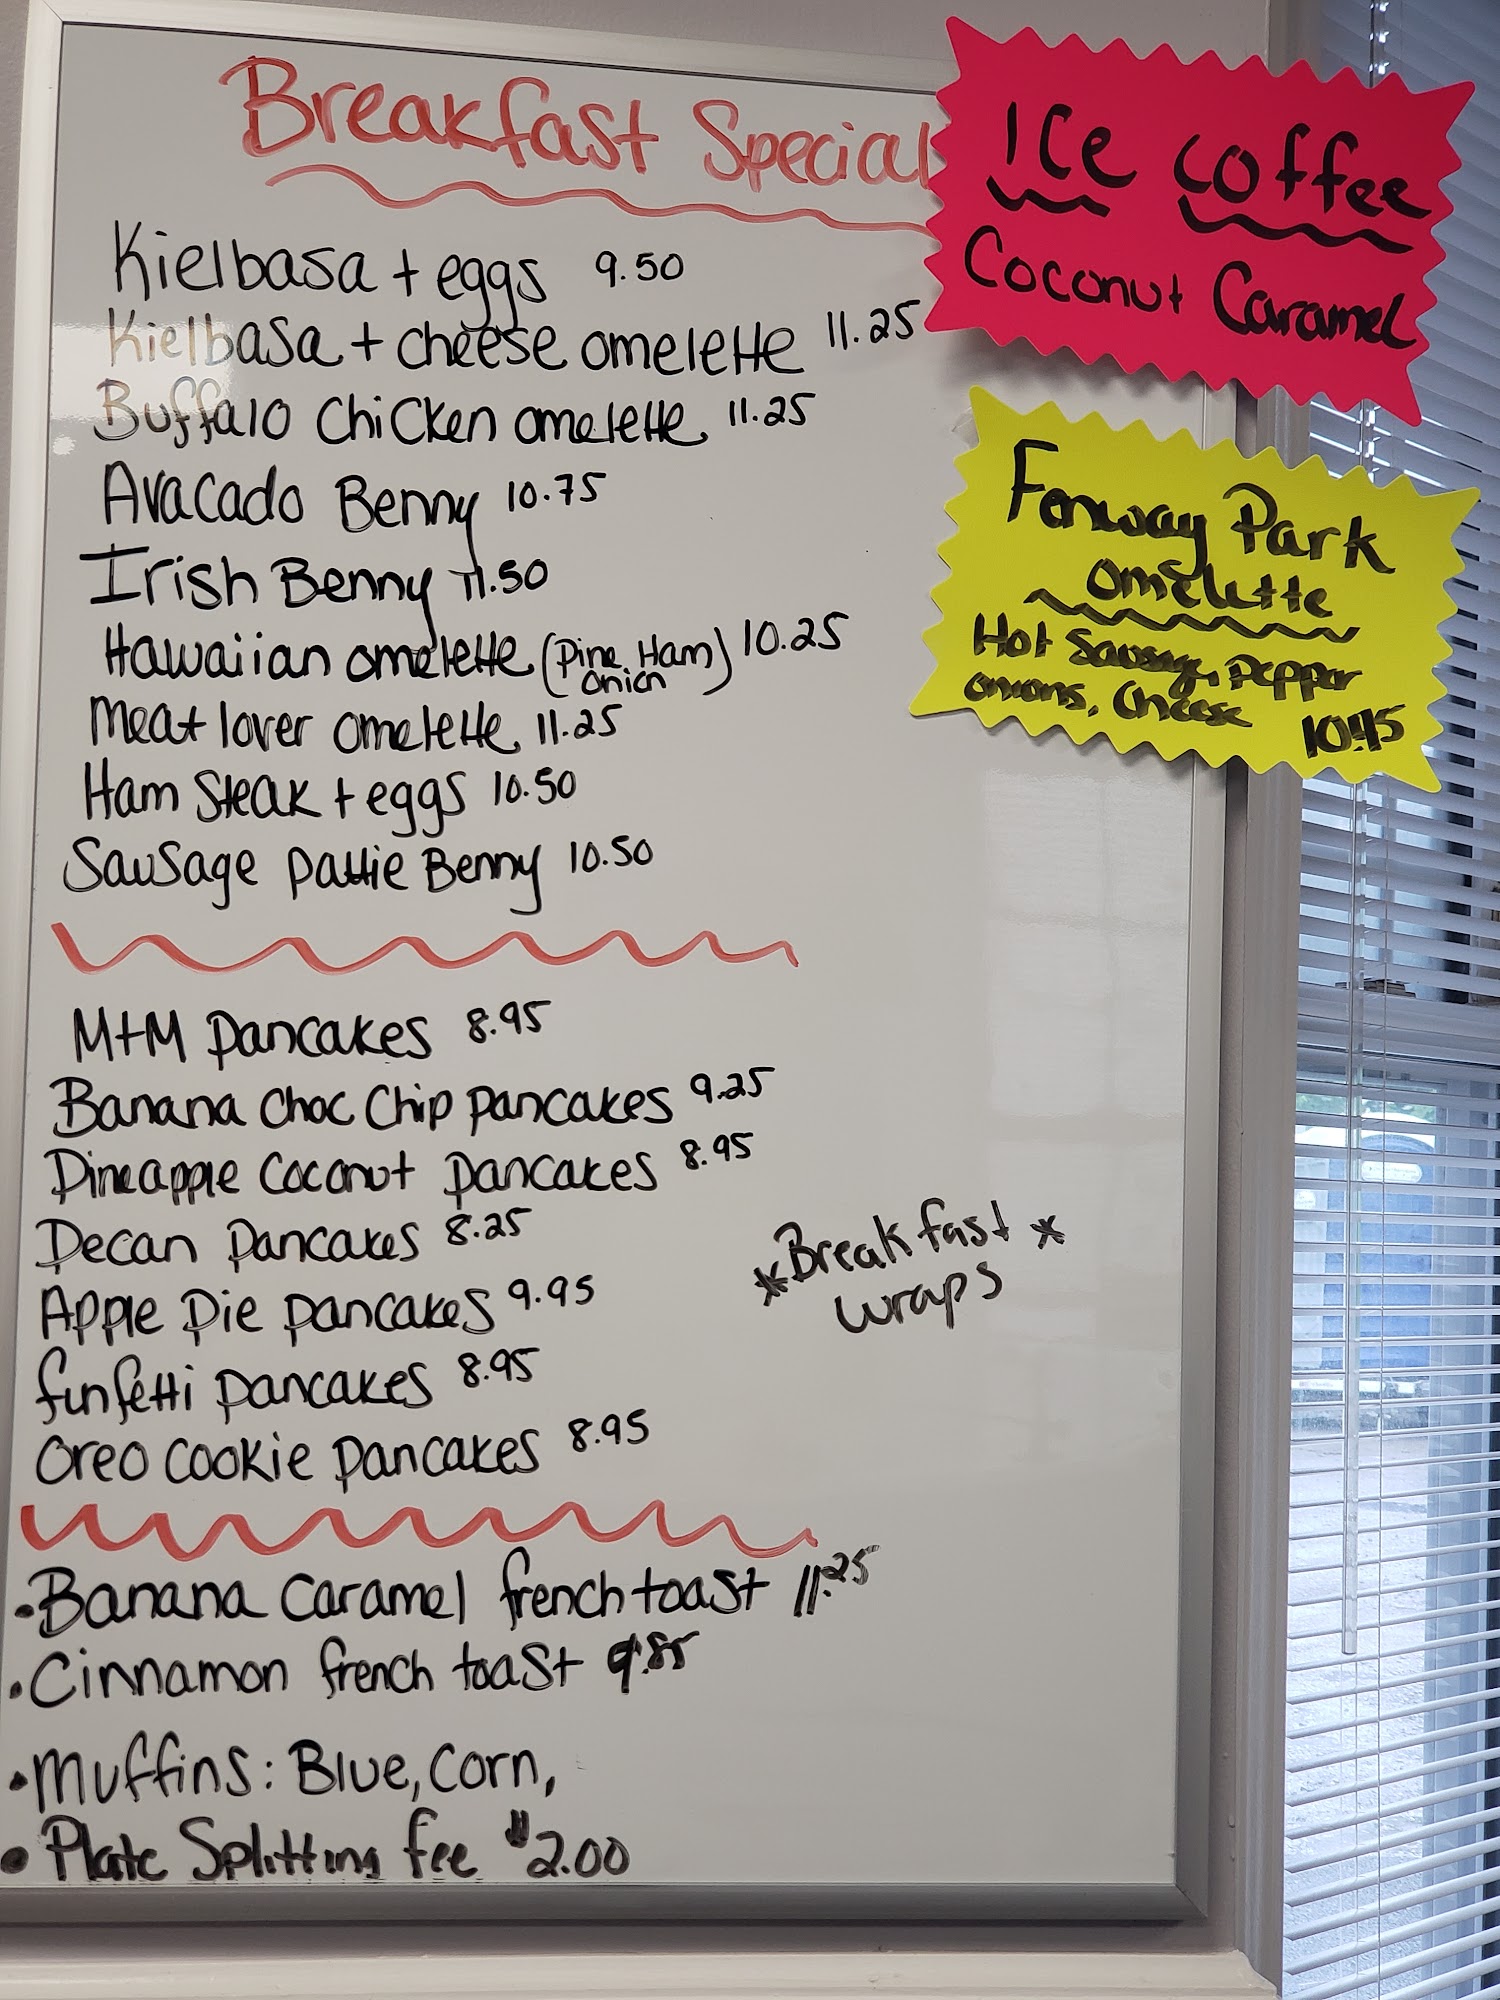 Breakfast Special
Kielbasa + eggs 9.50
Kielbasa + cheese omelette 11.25
Buffalo Chicken omelette 11.25
Avacado Benny 10.75
Irish Benny 11.50
Hawaiian omelette (Pine, Ham) 10.25
onion
Meat lover omelette 11.25
Ham Steak + eggs 10.50
Sausage Pattie Benny 10.50
M+M Pancakes 8.95
Banana Choc Chip Pancakes 9.25
Pineapple Coconut Pancakes 8.95
Pecan Pancakes 8.25
Apple Pie Pancakes 9.95
funfetti Pancakes 8.95
Oreo Cookie Pancakes 8.95
• Banana Caramel french toast 11.25
• Cinnamon french toast
• Muffins: Blue, Corn,
• Plate Splitting fee $2.00
*Breakfast*
wraps
Ice Coffee
Coconut Caramel
Fenway Park
omelette
Hot Sausage, Pepper
onions, Cheese